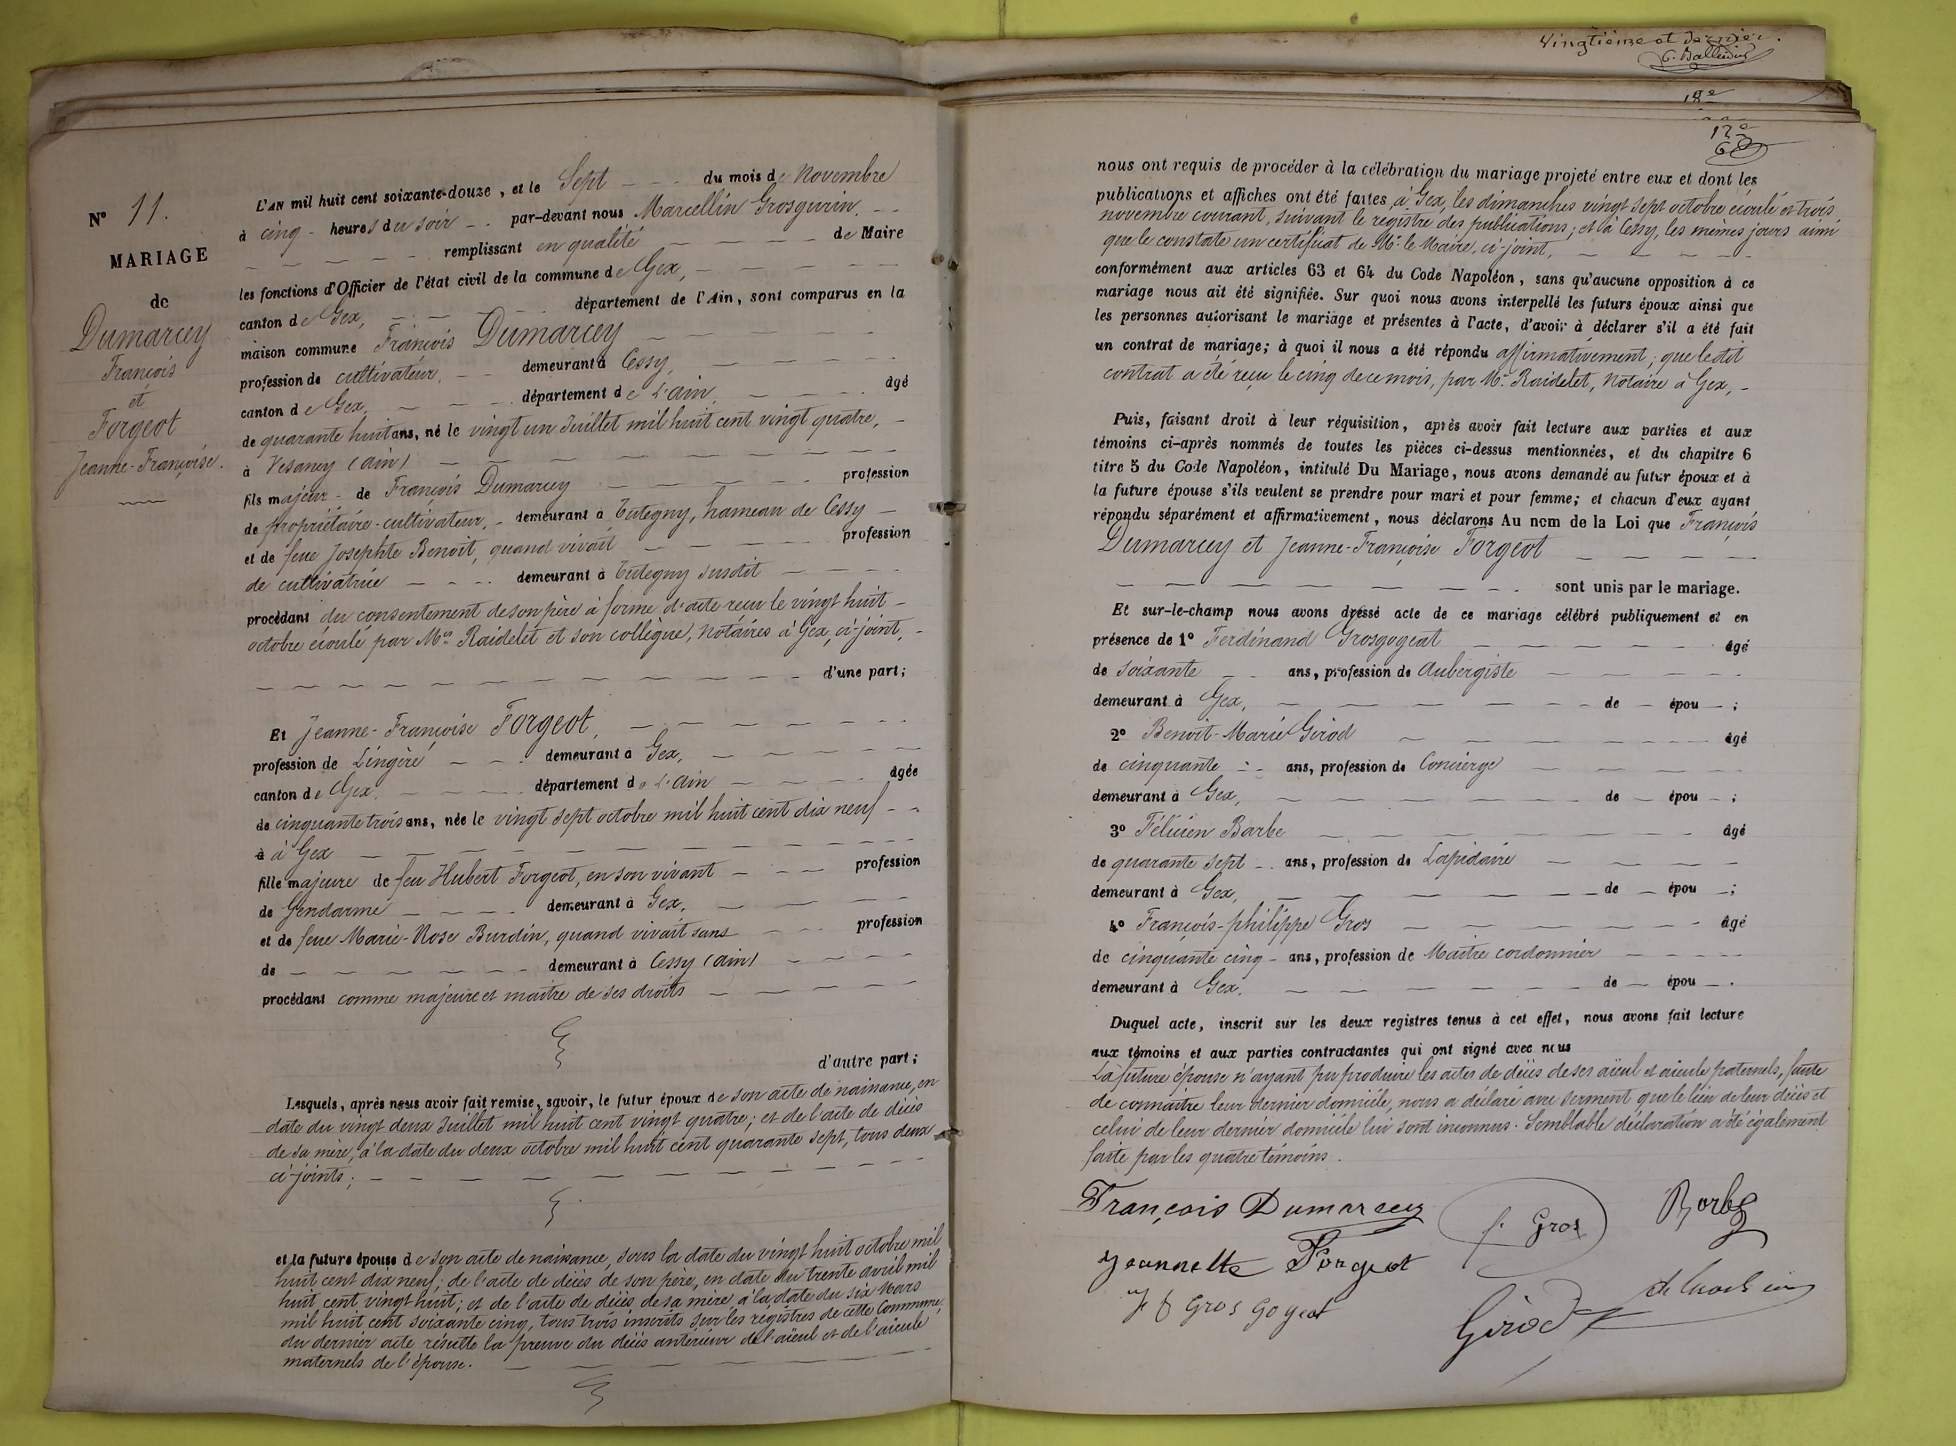 Vingtième et dernier.
18e
12e
N° 11.
MARIAGE
de
Dumarcey
François
et
Forgeot
Jeanne-Françoise.
L'AN mil huit cent soixante-douze, et le Sept du mois de Novembre
à cinq heures du soir par-devant nous Marcellin Grosgurin,
remplissant en qualité de Maire
les fonctions d'Officier de l'état civil de la commune de Gex,
canton de Gex, département de l'Ain, sont comparus en la
maison commune François Dumarcey
profession de cultivateur, demeurant à Cessy,
canton de Gex, département de L'ain, âgé
de quarante huit ans, né le vingt un Juillet mil huit cent vingt quatre,
à Vesancy (ain)
fils majeur de François Dumarcey profession
de propriétaire-cultivateur, demeurant à Tutegny, hameau de Cessy
et de feue Josephte Benoit, quand vivait profession
de cultivatrice demeurant à Tutegny susdit
procédant du consentement de son père à forme d'acte reçu le vingt huit
octobre écoulé par Mes Raidelet et son collègue, Notaires à Gex, ci-joint,
d'une part;
Et Jeanne-Françoise Forgeot,
profession de Lingère demeurant à Gex,
canton de Gex, département de L'ain âgée
de cinquante trois ans, née le vingt sept octobre mil huit cent dix neuf
à à Gex
fille majeure de feu Hubert Forgeot, en son vivant profession
de Gendarme demeurant à Gex,
et de feue Marie-Rose Burdin, quand vivait sans profession
de demeurant à Cessy (ain)
procédant comme majeure et maitre de ses droits
d'autre part;
Lesquels, après nous avoir fait remise, savoir, le futur époux de son acte de naissance, en
date du vingt deux Juillet mil huit cent vingt quatre; et de l'acte de décès
de sa mère, à la date du deux octobre mil huit cent quarante sept, tous deux
ci-joints;
et la future épouse de son acte de naissance, sous la date du vingt huit octobre mil
huit cent dix neuf; de l'acte de décès de son père, en date du trente avril mil
huit cent vingt huit; et de l'acte de décès de sa mère à la date du six Mars
mil huit cent soixante cinq, tous trois inscrits sur les registres de cette Commune,
du dernier acte résulte la preuve du décès antérieur de l'aïeul et de l'aïeule
maternels de l'épouse.
nous ont requis de procéder à la célébration du mariage projeté entre eux et dont les
publications et affiches ont été faites à Gex, les dimanches vingt sept octobre écoulé et trois
novembre courant, suivant le registre des publications; et à Cessy, les mêmes jours ainsi
que le constate un certificat de Mr. le Maire, ci-joint,
conformément aux articles 63 et 64 du Code Napoléon, sans qu'aucune opposition à ce
mariage nous ait été signifiée. Sur quoi nous avons interpellé les futurs époux ainsi que
les personnes autorisant le mariage et présentes à l'acte, d'avoir à déclarer s'il a été fait
un contrat de mariage; à quoi il nous a été répondu affirmativement; que le dit
contrat a été reçu le cinq de ce mois, par Me. Raidelet, Notaire à Gex,
Puis, faisant droit à leur réquisition, après avoir fait lecture aux parties et aux
témoins ci-après nommés de toutes les pièces ci-dessus mentionnées, et du chapitre 6
titre 5 du Code Napoléon, intitulé Du Mariage, nous avons demandé au futur époux et à
la future épouse s'ils veulent se prendre pour mari et pour femme; et chacun d'eux ayant
répondu séparément et affirmativement, nous déclarons Au nom de la Loi que François
Dumarcey et Jeanne-Françoise Forgeot
sont unis par le mariage.
Et sur-le-champ nous avons dressé acte de ce mariage célébré publiquement et en
présence de 1° Ferdinand Grosgogeat âgé
de soixante ans, profession de Aubergiste
demeurant à Gex, de épou ;
2° Benoit-Marie Girod âgé
de cinquante ans, profession de Concierge
demeurant à Gex, de épou ;
3° Félicien Barbe âgé
de quarante sept ans, profession de Lapidaire
demeurant à Gex, de épou ;
4° François-philippe Gros âgé
de cinquante cinq ans, profession de Maitre cordonnier
demeurant à Gex. de épou .
Duquel acte, inscrit sur les deux registres tenus à cet effet, nous avons fait lecture
aux témoins et aux parties contractantes qui ont signé avec nous
La future épouse n'ayant pu produire les actes de décès de ses aïeul et aïeule paternels, faute
de connaitre leur dernier domicile, nous a déclaré avec serment que le lieu de leur décès et
celui de leur dernier domicile lui sont inconnus. Semblable déclaration a été également
faite par les quatre témoins.
François Dumarcey f. Gros Barbe
Jeannette Forgeot
Gros Gogeat Girod